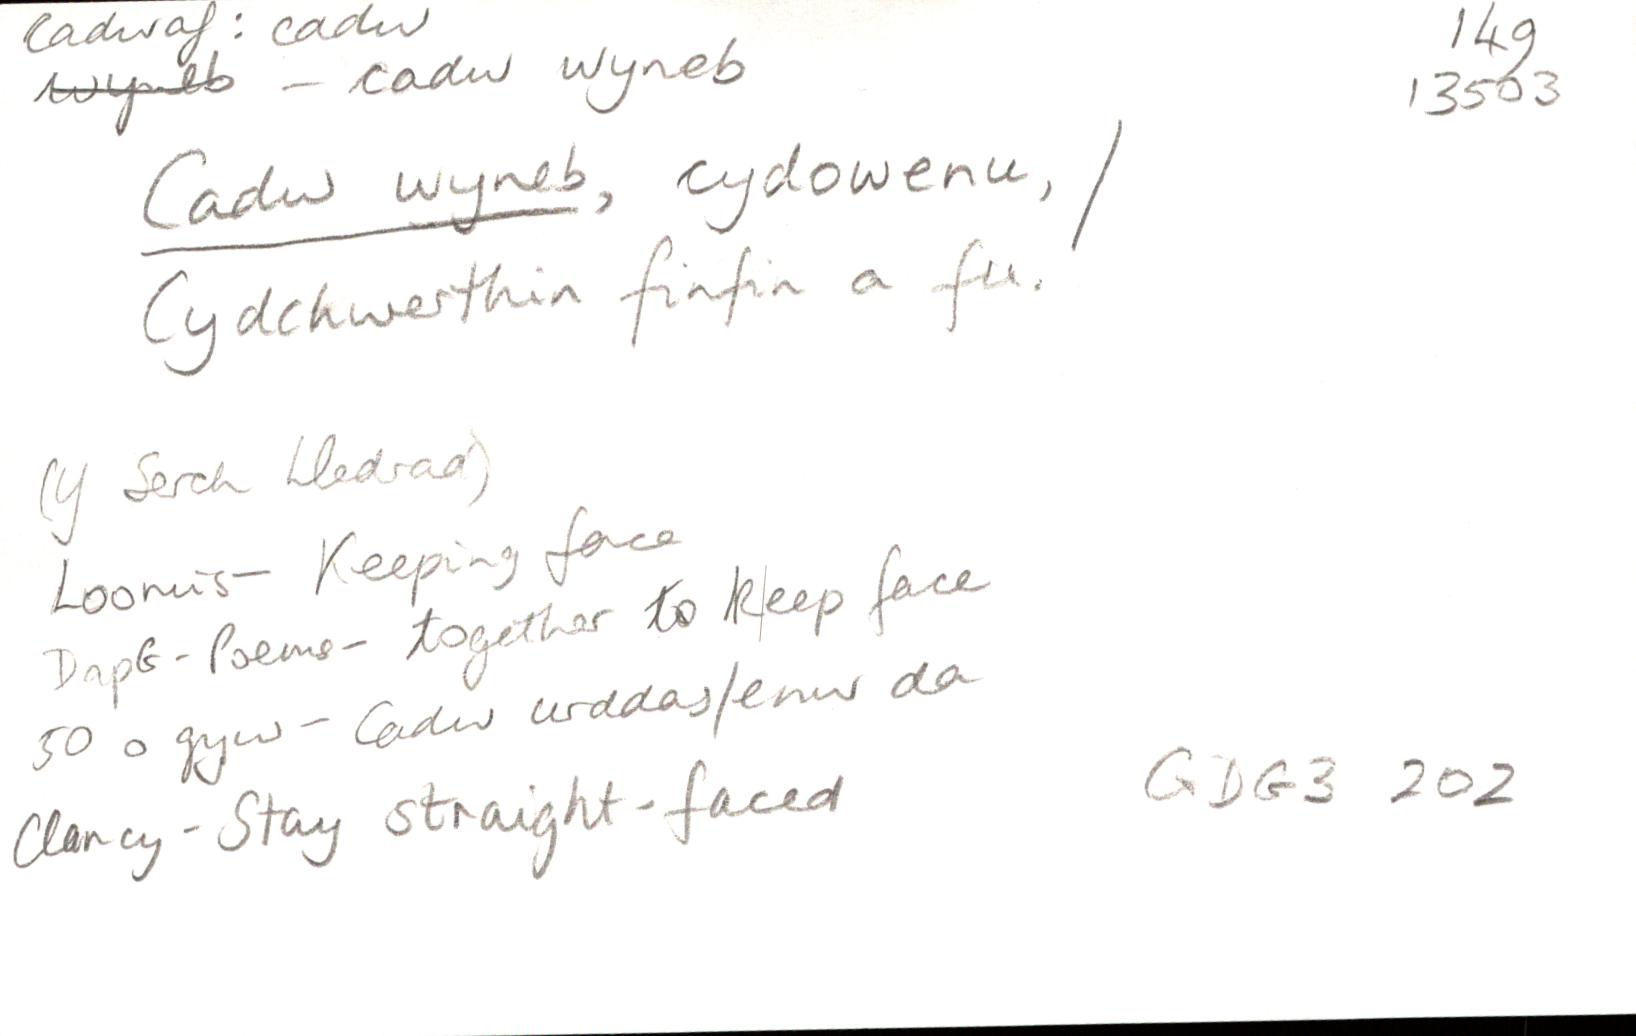 cadwaf: cadw
149
wyneb – cadw wyneb
13503
Cadw wyneb, cydowenu, /
Cydchwerthin finfin a fu.
(Y Serch Lledrad)
Loomis – Keeping face
DapG - Poems - together to keep face
50 o gyw – Cadw urddas/enw da
Clancy - Stay straight-faced
GDG3 202